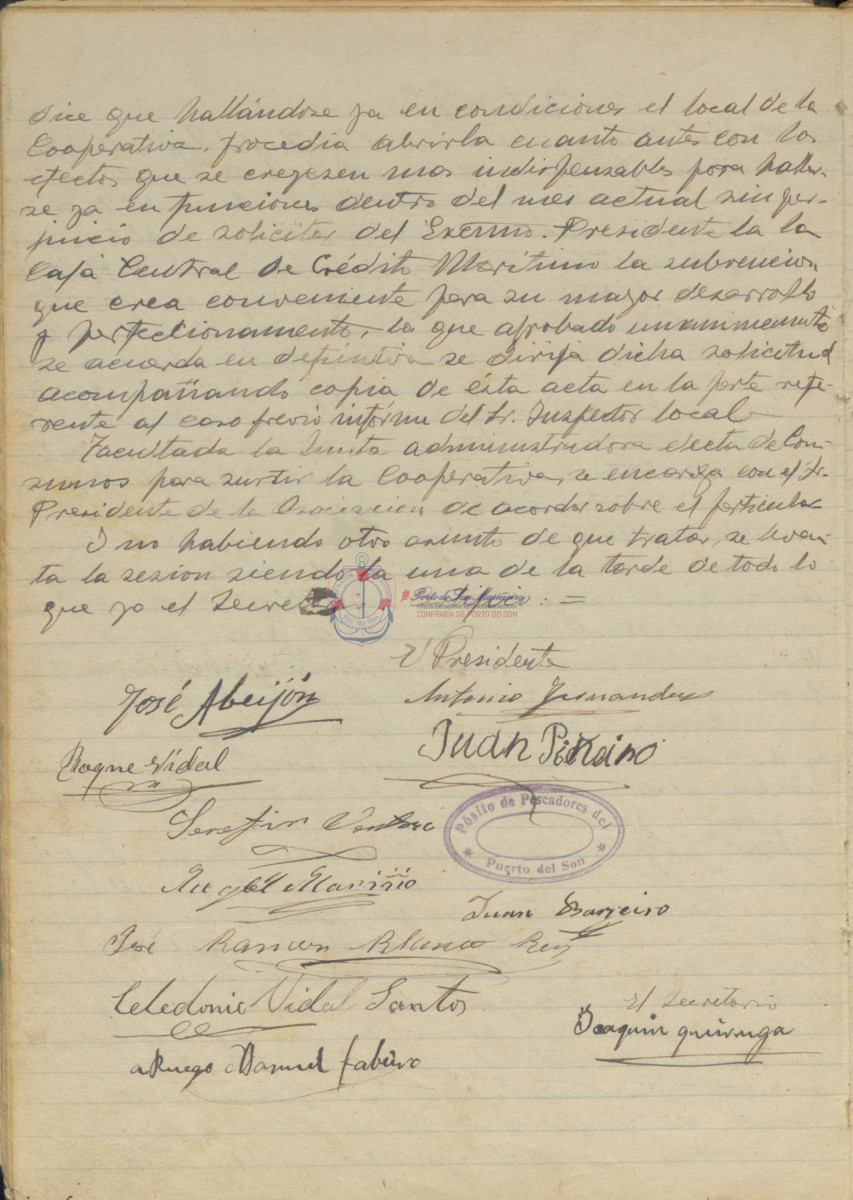 dice que hallándose ya en condiciones el local de la
Cooperativa, procedia abrirla cuanto antes con los
efectos que se creyesen mas indispensables para hallar-
se ya en funciones dentro del mes actual sin per-
juicio de solicitar del Excmo. Presidente la la
Caja Central de Crédito Maritimo la subvencion
que crea conveniente para su mayor desarrollo
y perfeccionamento, lo que aprobado unanimemente
se acuerda en definitiva se dirija dicha solicitud
acompañando copia de ésta acta en la parte refe-
rente al caso previo informe del Sr. Inspector local
Facultada la Junta administradora electa de Con-
sumos para surtir la Cooperativa, se encarga con el Sr.
Presidente de la Asociacion de acordar sobre el particular
I no habiendo otro asunto de que tratar, se levan-
ta la sesion siendo la una de la tarde de todo lo
que yo el
CONFRARÍA DE PORTO DO SON
El Presidente
José Abeijón
Antonio Fernandez
Roque Vidal
Juan Piñeiro
Serafin
Pósito de Pescadores del
Puerto del Son
Angel Mariño
Juan Barreiro
José Ramon Blanco Rey
Celedonio Vidal Santos
El Secretario
Joaquin Quiruga
a Ruego Manuel Fabeiro